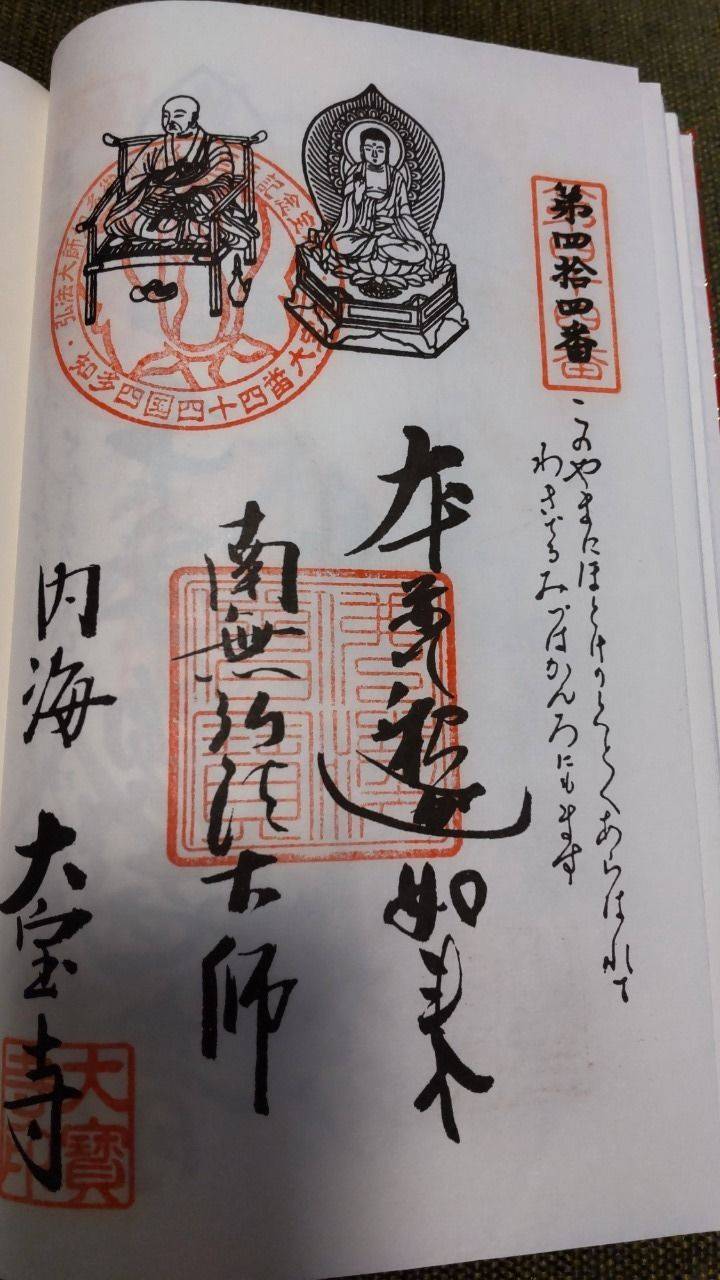 第四拾四番
このやまにほとけのとくとくあらはれて
わきでるみづはかんろにもます
本尊釈迦如来
南無弘法大師
内海 大宝寺
弘法大師
知多四国四十四番大宝
大寶